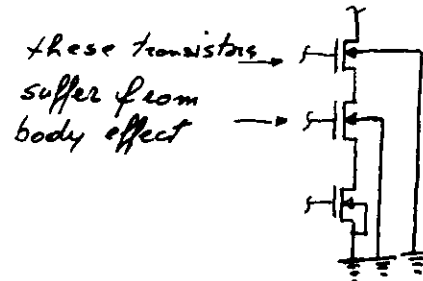 these transistors
suffer from
body effect